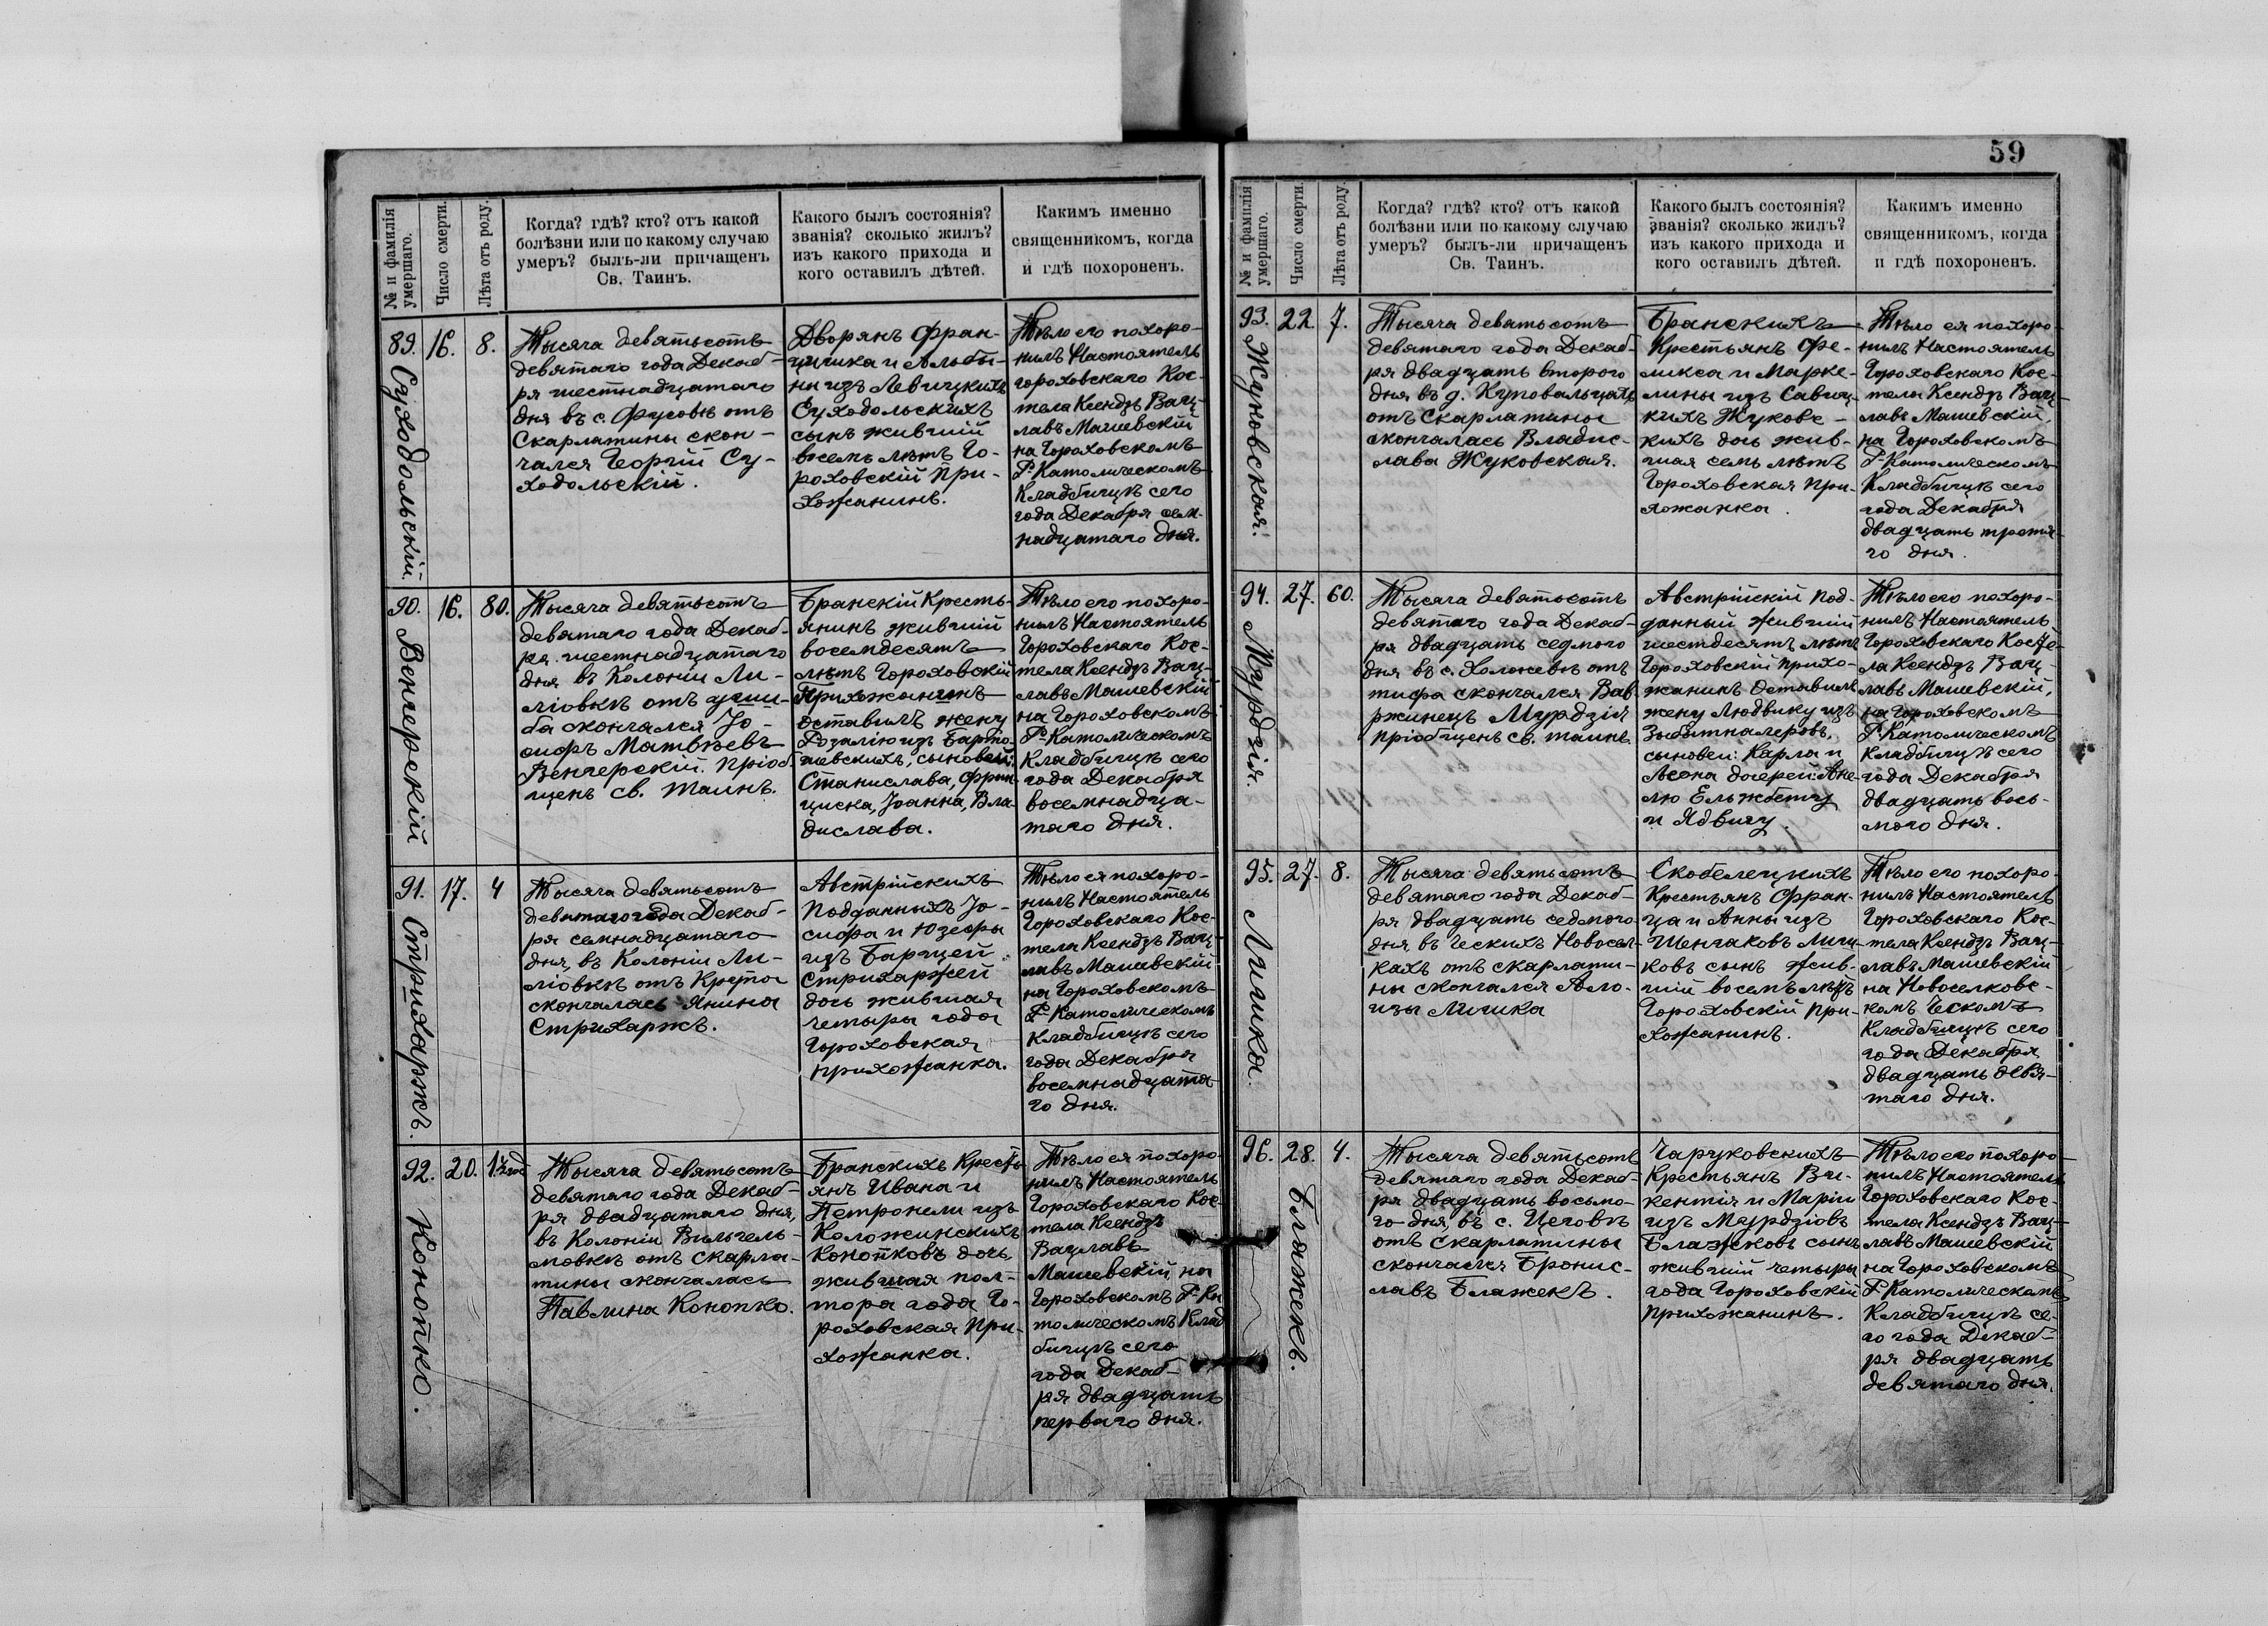 59
№ и фамилія
умершаго.
Число смерти.
Лѣта отъ роду.
Когда? гдѣ? кто? отъ какой
болѣзни или по какому случаю
умеръ? былъ-ли причащенъ
Св. Таинъ.
Какого былъ состоянія?
званія? сколько жилъ?
изъ какого прихода и
кого оставилъ дѣтей.
Какимъ именно
священникомъ, когда
и гдѣ похороненъ.
89.
Суходольскій.
16.
8.
Тысяча девятьсотъ
девятаго года Декаб-
ря шестнадцатаго
дня въ с. Фусовѣ отъ
Скарлатины скон-
чался Георгій Су-
ходольскій.
Дворянъ Фран-
цишка и Альби-
ны изъ Левицкихъ
Суходольскихъ
сынъ жившій
восемь лѣтъ Го-
роховскій При-
хожанинъ.
Тѣло его похоро-
нилъ Настоятель
Гороховскаго Кос-
тела Ксендзъ Вац-
лавъ Машевскій
на Гороховскомъ
Р-Католическомъ
Кладбищѣ сего
года Декабря сем-
надцатаго дня.
90.
Венгерскій
16.
80.
Тысяча девятьсотъ
девятаго года Декаб-
ря шестнадцатаго
дня въ Колоніи Ли-
ліовкѣ отъ уши-
ба скончался Іо-
сифъ Матвѣевъ
Венгерскій. Пріоб-
щенъ св. таинъ.
Бранскій Кресть-
янинъ жившій
восемдесятъ
лѣтъ Гороховскій
Прихожанинъ
оставилъ жену
Розалію изъ Барто-
шевскихъ, сыновей:
Станислава, Фран-
циска, Іоанна, Вла-
дислава.
Тѣло его похоро-
нилъ Настоятель
Гороховскаго Кос-
тела Ксендзъ Вац-
лавъ Машевскій
на Гороховскомъ
Р-Католическомъ
Кладбищѣ сего
года Декабря
восемнадца-
таго дня.
91.
Стрихаржъ.
17.
4
Тысяча девятьсотъ
девятаго года Декаб-
ря семнадцатаго
дня, въ Колоніи Ли-
ліовкѣ отъ Крупа
скончалась Янина
Стрихаржъ.
Австрійскихъ
Подданныхъ Іо-
сифа и Юзефы
изъ Барщей
Стрихаржей
дочь жившая
четыры года
Гороховская
прихожанка.
Тѣло ея похоро-
нилъ Настоятель
Гороховскаго Кос-
тела Ксендзъ Вац-
лавъ Машевскій
на Гороховскомъ
Р-Католическомъ
Кладбищѣ сего
года Декабря
восемнадцата-
го дня.
92.
Конопко.
20.
1½ год
Тысяча девятьсотъ
девятаго года Декаб-
ря двадцатаго дня,
въ Колоніи Вильгель-
мовкѣ отъ скарла-
тины скончалась
Павлина Конопко.
Бранскихъ Кресть-
янъ Ивана и
Петронели изъ
Коложинскихъ
Конопковъ дочь
жившая пол-
тора года Го-
роховская При-
хожанка.
Тѣло ея похоро-
нилъ Настоятель
Гороховскаго Кос-
тела Ксендзъ
Вацлавъ
Машевскій на
Гороховскомъ Р-Ка
толическомъ Клад
бищѣ сего
года Декаб-
ря двадцать
перваго дня.
№ и фамилія
умершаго.
Число смерти.
Лѣта отъ роду.
Когда? гдѣ? кто? отъ какой
болѣзни или по какому случаю
умеръ? былъ-ли причащенъ
Св. Таинъ.
Какого былъ состоянія?
званія? сколько жилъ?
изъ какого прихода и
кого оставилъ дѣтей.
Какимъ именно
священникомъ, когда
и гдѣ похороненъ.
93.
Жуковская.
22
7.
Тысяча девятьсотъ
девятаго года Декаб-
ря двадцать второго
дня въ д. Куповальцахъ
отъ Скарлатины
скончалась Владис-
лава Жуковская.
Бранскихъ
Крестьянъ Фе-
ликса и Марке-
лины изъ Савиц-
кихъ Жуковс-
кихъ дочь жив-
шая семь лѣтъ
Гороховская при-
хожанка.
Тѣло ея похоро-
нилъ Настоятель
Гороховскаго Кос-
тела Ксендзъ Вац-
лавъ Машевскій,
на Гороховскомъ
Р-Католическомъ
Кладбищѣ сего
года Декабря
двадцать третья-
го дня.
94.
Мурдзія.
27.
60.
Тысяча девятьсотъ
девятаго года Декаб-
ря двадцать седмого
дня въ с. Холоневѣ отъ
тифа скончался Вав-
ржинецъ Мурдзія
пріобщенъ св. таинъ.
Австрійскій под-
данный жившій
шестдесятъ лѣтъ
Гороховскій прихо-
жанинъ оставилъ
жену Людвику изъ
сыновей: Карла и
Леона дочерей: Ане-
лю Ельжбету
и Ядвигу.
Тѣло его похоро-
нилъ Настоятель
Гороховскаго Косте-
ла Ксендзъ Вац-
лавъ Машевскій,
на Гороховскомъ
Р-Католическомъ
Кладбищѣ сего
года Декабря
двадцать вось-
мого дня.
95.
Личика.
27.
8.
Тысяча девятьсотъ
девятаго года Декаб-
ря двадцать седмого
дня въ Ческихъ Новосел-
кахъ отъ скарлати-
ны скончался Ало-
изы Личика
Скобелецкихъ
Крестьянъ Фран-
ца и Анны изъ
Шенчаковъ Личи-
ковъ сынъ жив-
шій восемь лѣтъ
Гороховскій При-
хожанинъ.
Тѣло его похоро-
нилъ Настоятель
Гороховскаго Кос-
тела Ксендзъ Вац-
лавъ Машевскій
на Новоселковс-
комъ Ческомъ
Кладбищѣ сего
года Декабря
двадцать девя-
таго дня.
96.
Блажекъ.
28.
4.
Тысяча девятьсотъ
девятаго года Декаб-
ря двадцать восьмо-
го дня, въ с. Цеговѣ
отъ скарлатины
скончался Бронис-
лавъ Блажекъ.
Чаруковскихъ
Крестьянъ Ви-
кентія и Маріи
изъ Мурдзіовъ
Блажковъ сынъ
жившій четыры
года Гороховскій
Прихожанинъ.
Тѣло его похоро-
нилъ Настоятель
Гороховскаго Кос-
тела Ксендзъ Вац-
лавъ Машевскій
на Гороховскомъ
Р-Католическомъ
Кладбищѣ се-
го года Декаб-
ря двадцать
девятаго дня.